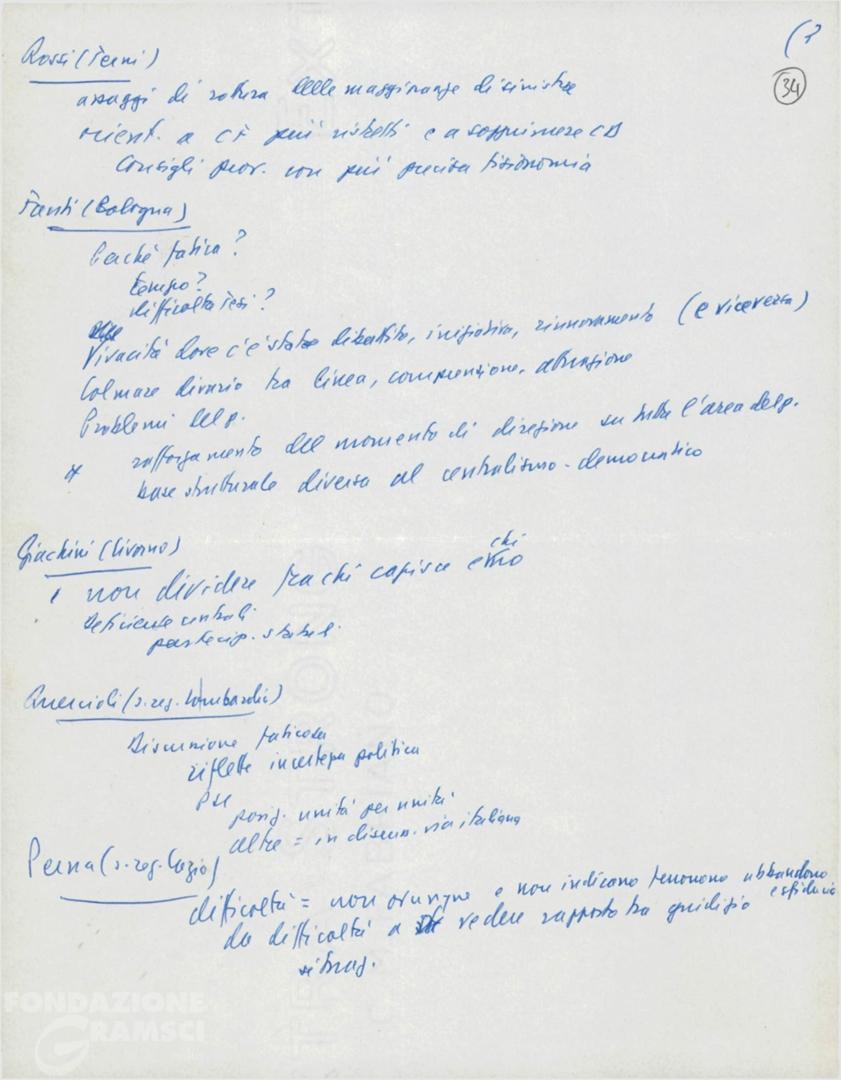 (3
34
Rossi (Terni)
assaggi di rottura delle maggioranze di sinistra
orient. a CF più ristretti e a sopprimere CD
Consigli prov. con più precisa fisionomia
Fanti (Bologna)
Perché fatica?
tempo?
difficoltà tesi?
Vivacità dove c'è stato dibattito, iniziativa, rinnovamento (e viceversa)
Colmare divario tra linea, comprensione, attuazione
Problemi del p.
rafforzamento del momento di direzione su tutta l'area del p.
base strutturale diversa al centralismo-democratico
Giachini (Livorno)
non dividere tra chi capisce e chi no
deficienze centrali
partecip. statali
Quercioli (s. reg. Lombardia)
Discussione faticosa
riflette incertezza politica
PSU
posiz. unità per unità
altre = in discuss. via italiana
Perna (s. reg. Lazio)
difficoltà = non ovunque e non indicano nemmeno abbandono
e sfiducia
da difficoltà a vedere rapporto tra giudizio
situaz.
FONDAZIONE
GRAMSCI